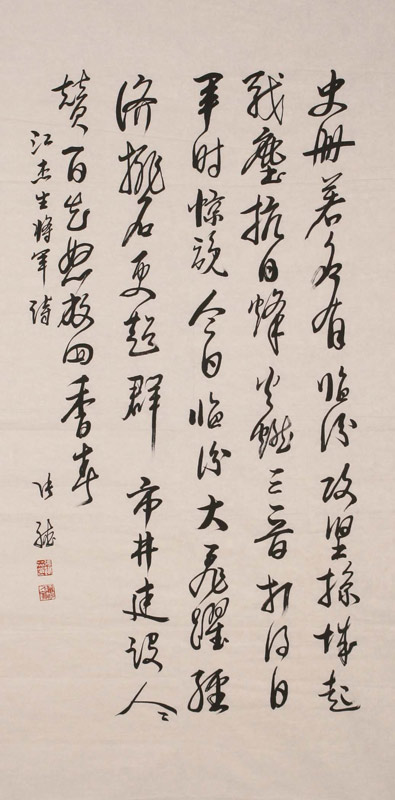 史册著名有临汾攻坚城起
战尘抗日烽火燃三晋打得日
军时惊今日临汾大飞跃经
济排名更超群市井建设人々
赞百花怒放四季春
江杰生将军诗
张